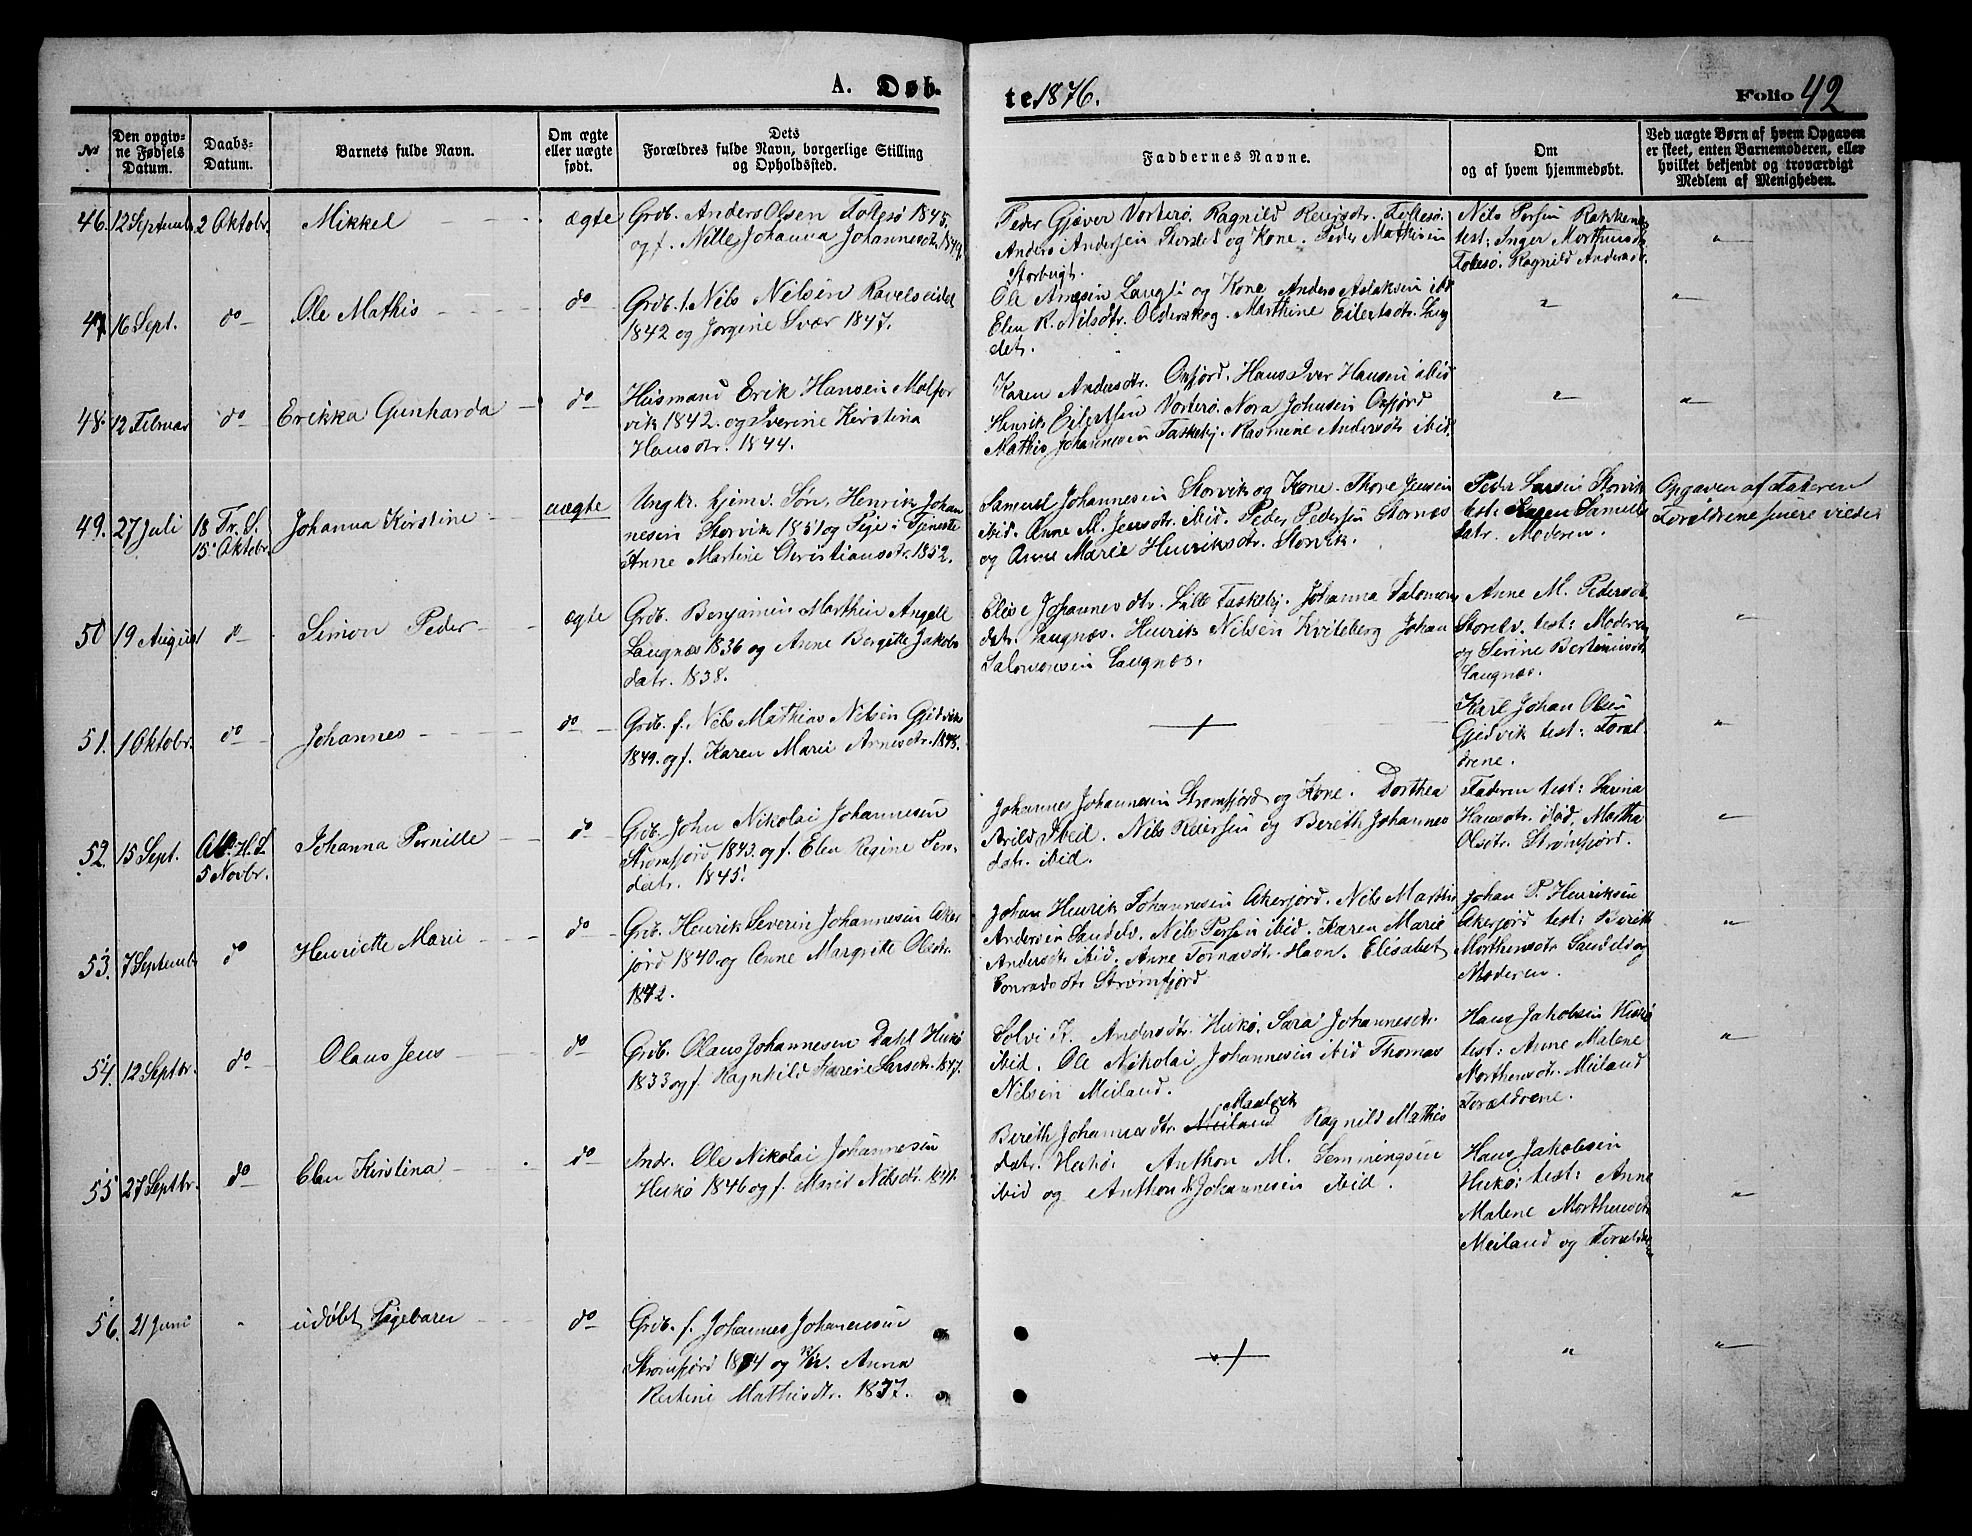 A. Døb-
te 1876.
Folio 42
No.
Den opgiv-
ne Fødsels
Datum.
Daabs-
Datum.
Barnets fulde Navn.
Om ægte
eller uægte
født.
Dets
Forældres fulde Navn, borgerlige Stilling
og Opholdssted.
Faddernes Navne.
Om
og af hvem hjemmedøbt.
Ved uægte Børn af hvem Opgaven
er skeet, enten Barnemoderen, eller
hvilket bekjendt og troværdigt
Medlem af Menigheden.
46. 12 Septembr 2 Oktobr. Mikkel ægte
Grdb. Anders Olsen Follesø 1845,
og f. Nille Johanna Johannesdtr. 1849.
Peder Gjæver Vorterø. Ragnild Reiersdtr. Follesø.
Anders Andersen Storslet og Kone. Peder Mathisen
Storbugt.
Nils Persen Rakkenes
test: Inger Morthensdtr.
Follesø. Ragnild Andersdtr.
"
47. 16 Sept. do Ole Mathis do
Grdb. f. Nils Nilsen Ravelseidet
1842 og Jørgine Svær 1847.
Ole Arnesen Langli og Kone Anders Aslaksen ibd
Elen R. Nilsdtr. Olderskog. Marthine Eilertsdtr. Sung
det.
"
"
48. 12 Februar do Erikka Gunharda do
Husmand Erik Hansen Molfor
vik 1842. og Iverine Kirstina
Hansdtr. 1844.
Karen Andersdtr. Oxfjord. Hans Iver Hansen ibid
Henrik Eilertsen Vorterø. Nora Johnsen Oxfjord
Mathis Johannesen Taskeby. Rasmine Andersdtr ibid.
"
"
49. 27 Juli 18 Tr. S.
15 Oktobr. Johanna Kirstine uægte
Ungkr. hjemv. Søn, Henrik Johan
nesen Storvik 1851 og Pige i Tjeneste
Anne Martine Christiansdtr. 1852.
Samuel Johannesen Storvik og Kone. Thone Jensen
ibid. Anne M. Jensdtr. ibid. Peder Pedersen Stornæs
og Anne Marie Henriksdtr. Storvik.
Peder Larsen Storvik
test: Karen Samuels
datr. Moderen.
Opgaven af Faderen
Forældrene senere viede
50 19 August do Simon Peder ægte
Grdb. Benjamin Marthin Angell
Laugnæs 1836 og Anne Borgitte Jakobs
datr. 1838.
Elise Johannesdtr. Lille Taskeby. Johanna Salomons
datr. Laugnæs. Henrik Nilsen Kviteberg Johan
Salomonsen Laugnæs.
Anne M. Pedersdtr
Storelv. test: Moderen
og Serine Bertinusdtr.
Laugnæs.
"
51. 1 Oktobr. do Johannes do
Grdb. f. Nils Mathias Nilsen Gjedvik
1849. og f. Karen Marie Arnesdtr. 1848.
Karl Johan Olsen
Gjedvik test: Foræl-
drene.
"
52. 15 Sept. All. H. S.
5 Novbr. Johanna Pernille do
Grdb. John Nikolai Johannesen
Strømfjord 1843. og f. Elen Regine Jens
datr. 1845.
Johannes Johannesen Strømfjord og Kone. Dorthea
Arild Ibid. Nils Reiersen og Bereth Johannes
datr. ibid.
Faderen test: Larina
Hansdtr. ibid, Martha
Olsdtr. Strømfjord.
"
53. 7 Septembr do Henriette Marie do
Grdb. Henrik Severin Johannesen Aker
fjord 1840. og Anne Margritte Olsdtr.
1842.
Johan Henrik Johannesen Akerfjord. Nils Marthin
Andersen Sandelv. Nils Persen ibid. Karen Marie
Andersdtr ibid. Anne Tomasdtr. Havn. Elisabet
Conradsdtr Strømfjord
Johan P. Henriksen
Akerfjord test: Berith
Morthensdtr Sandelv og
Moderen.
"
54. 12 Septbr. do Olaus Jens do
Grdb. Olaus Johannesen Dahl Hukø
1833 og f. Ragnhild Karen Larsdtr. 1847.
Solvi K. Andersdtr. Hukø. Sara Johannesdtr.
ibid. Ole Nikolai Johannesen ibid Thomas
Nilsen Meiland.
Hans Jakobsen Hukø
test: Anne Malene
Morthensdtr. Meiland
Forældrene.
"
55 27 Septbr. do Elen Kirstina do
Indr. Ole Nikolai Johannesen
Hukø 1846 og f. Marit Nilsdtr. 1841.
Maalvik
Bereth Johannesdtr. Meiland Ragnild Mathis
datr. Hukø. Anthon M. Semmingsen
ibid og Anthon Johannesen ibid.
Hans Jakobsen
Hukø: test: Anne
Malene Morthensdtr
Meiland og Forældrene
"
56. 21 Juni " udøbt Pigebarn do
Grdb. f. Johannes Johannesen
Strømfjord 1834 og Anna
Kirstine Mathisdtr. 1837.
"
"